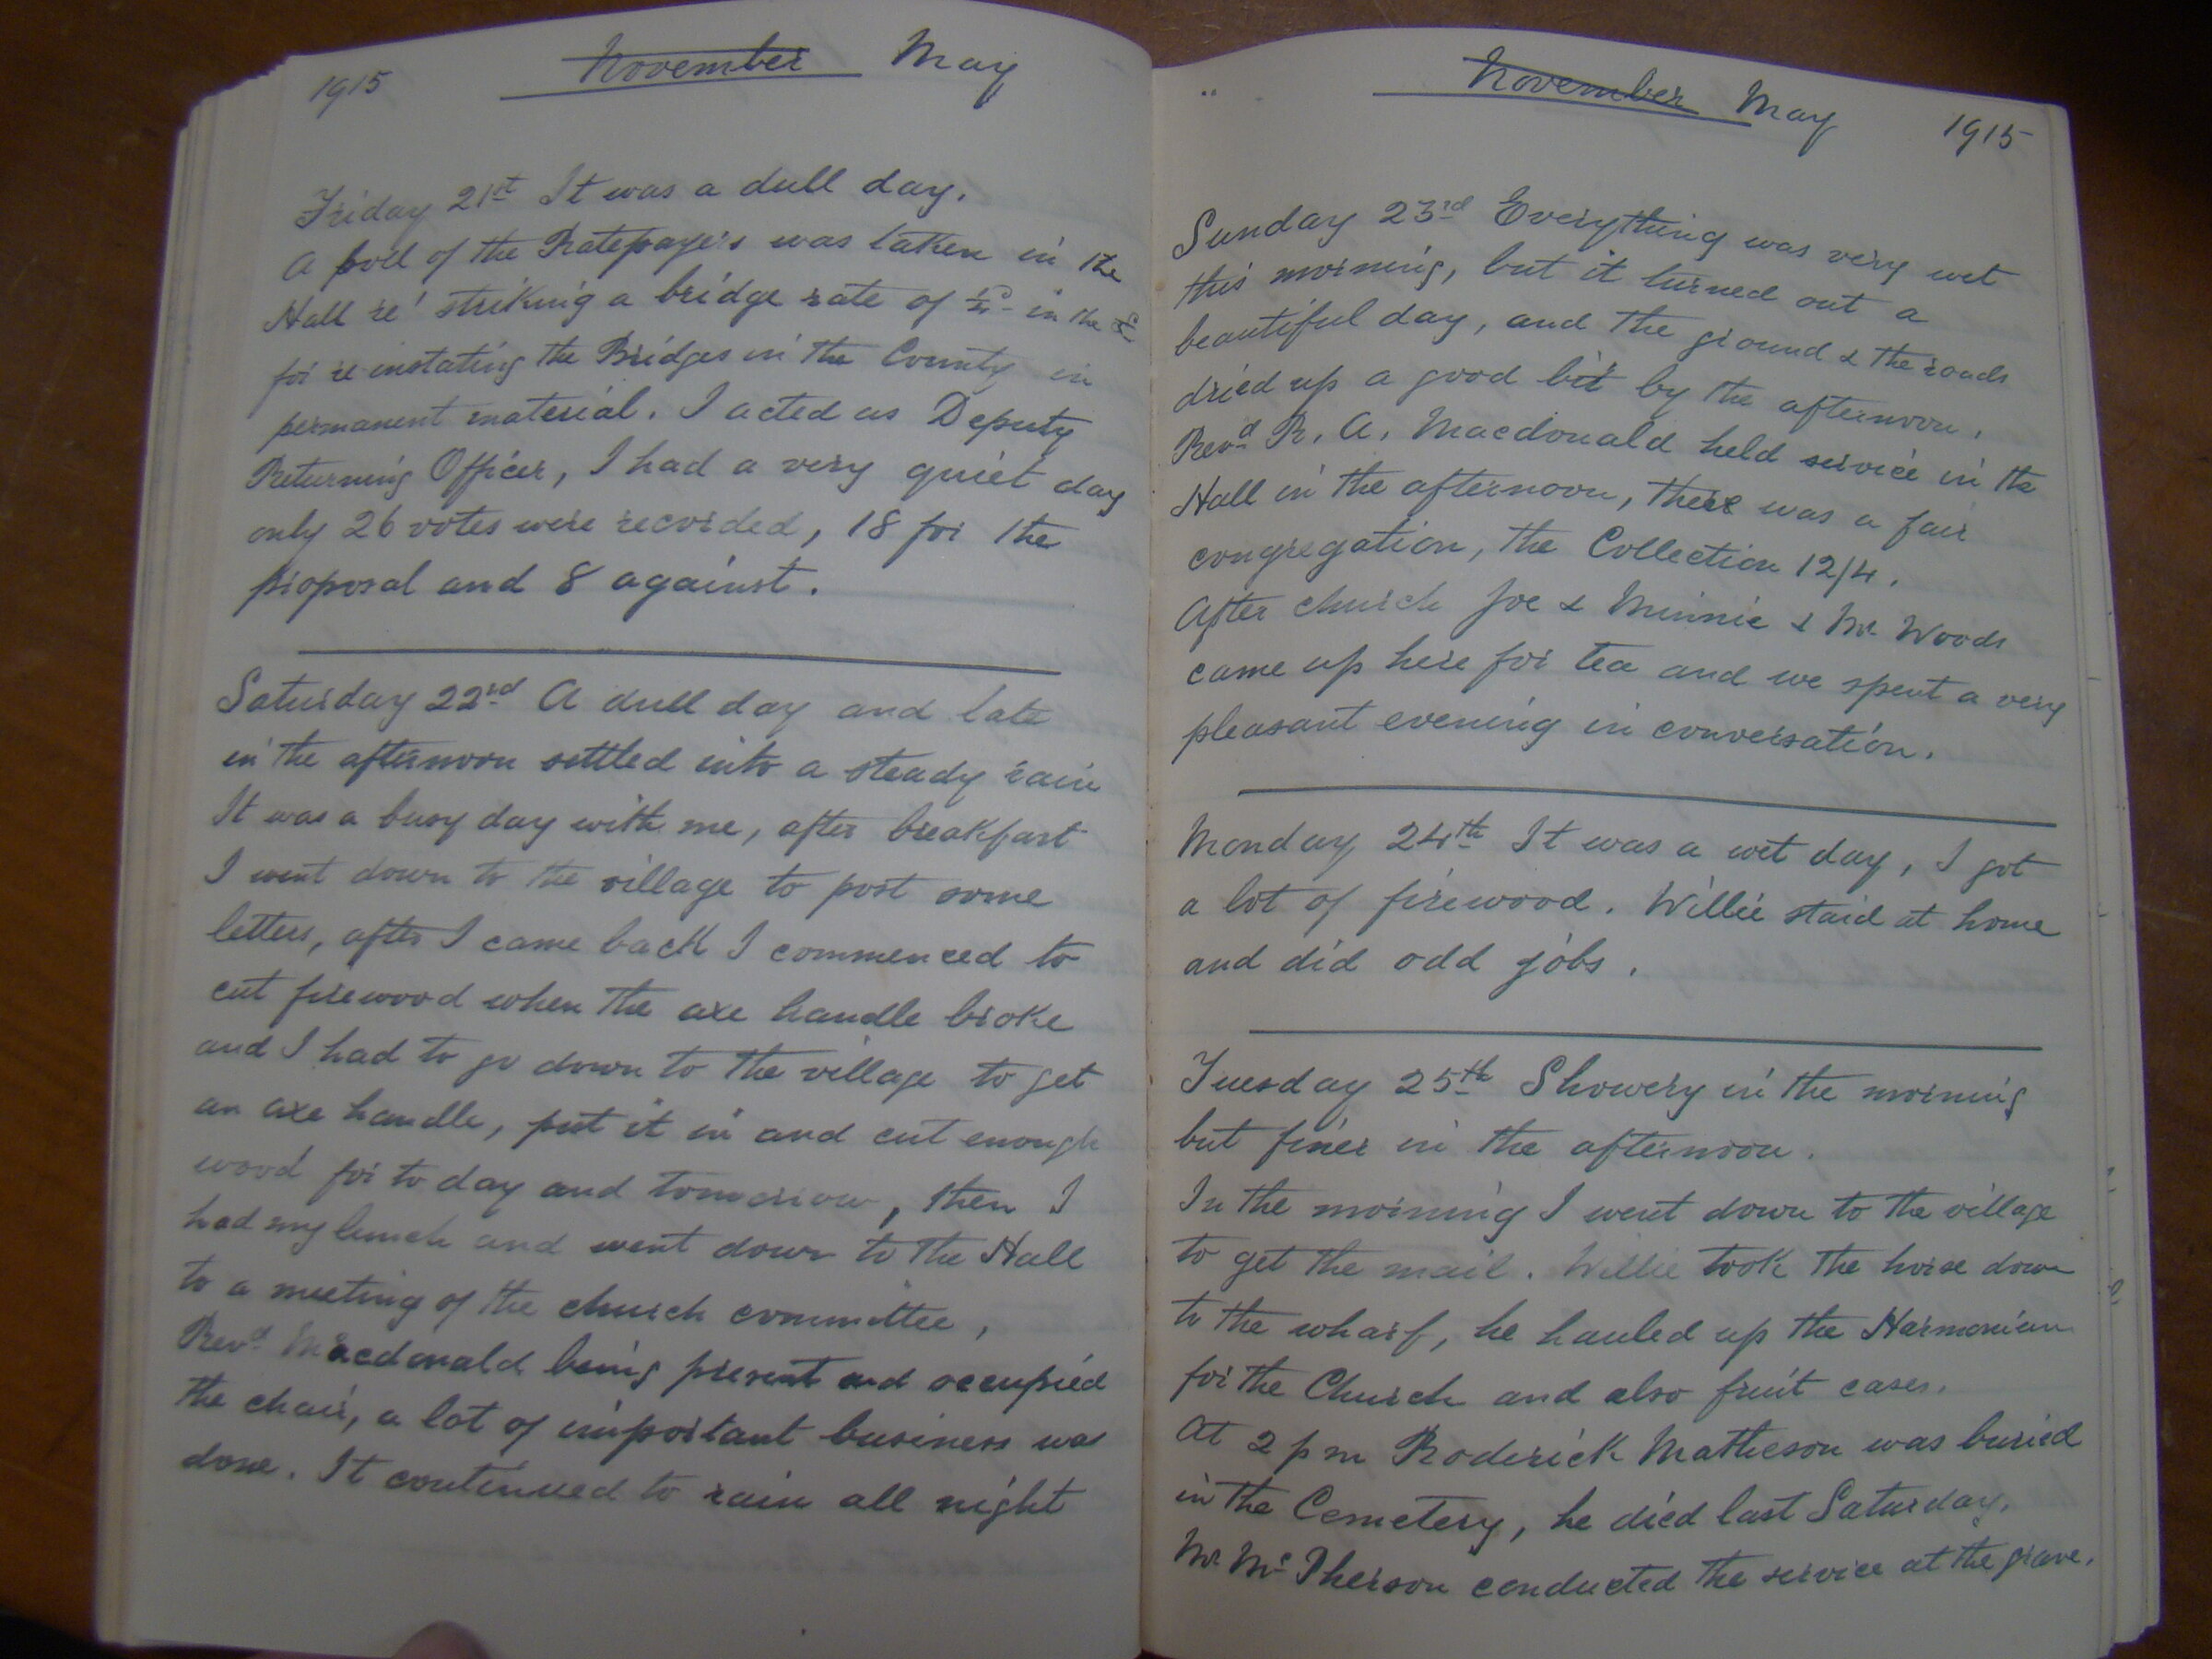 1915 November May
Friday 21st It was a dull day.
A poll of the Ratepayers was taken in the
Hall re' striking a bridge rate of in the £
for re instating the Bridges in the County in
permanent material. I acted as Deputy
Returning Officer, I had a very quiet day
only 26 votes were recorded, 18 for the
proposal and 8 against.
Saturday 22nd A dull day and late
in the afternoon settled into a steady rain
It was a busy day with me, after breakfast
I went down to the village to post some
letters, after I came back I commenced to
cut firewood when the axe handle broke
and I had to go down to the village to get
an axe handle, put it in and cut enough
wood for to day and tomorrow, then I
had my lunch and went down to the Hall
to a meeting of the church committee,
Revd Macdonald being present and occupied
the chair, a lot of important business was
done. It continued to rain all night
November May 1915
Sunday 23rd Everything was very wet
this morning, but it turned out a
beautiful day, and the ground & the roads
dried up a good bit by the afternoon.
Revd R. A. Macdonald held service in the
Hall in the afternoon, there was a fair
congregation, the Collection 12/4.
After church Joe & Minnie & Mr Woods
came up here for tea and we spent a very
pleasant evening in conversation.
Monday 24th It was a wet day, I got
a lot of firewood. Willie staid at home
and did odd jobs.
Tuesday 25th Showery in the morning
but finer in the afternoon.
In the morning I went down to the village
to get the mail. Willie took the horse down
to the wharf, he hauled up the Harmonium
for the Church and also fruit cases.
At 2 pm Roderick Matheson was buried
in the Cemetery, he died last Saturday.
Mr McPherson conducted the service at the grave.